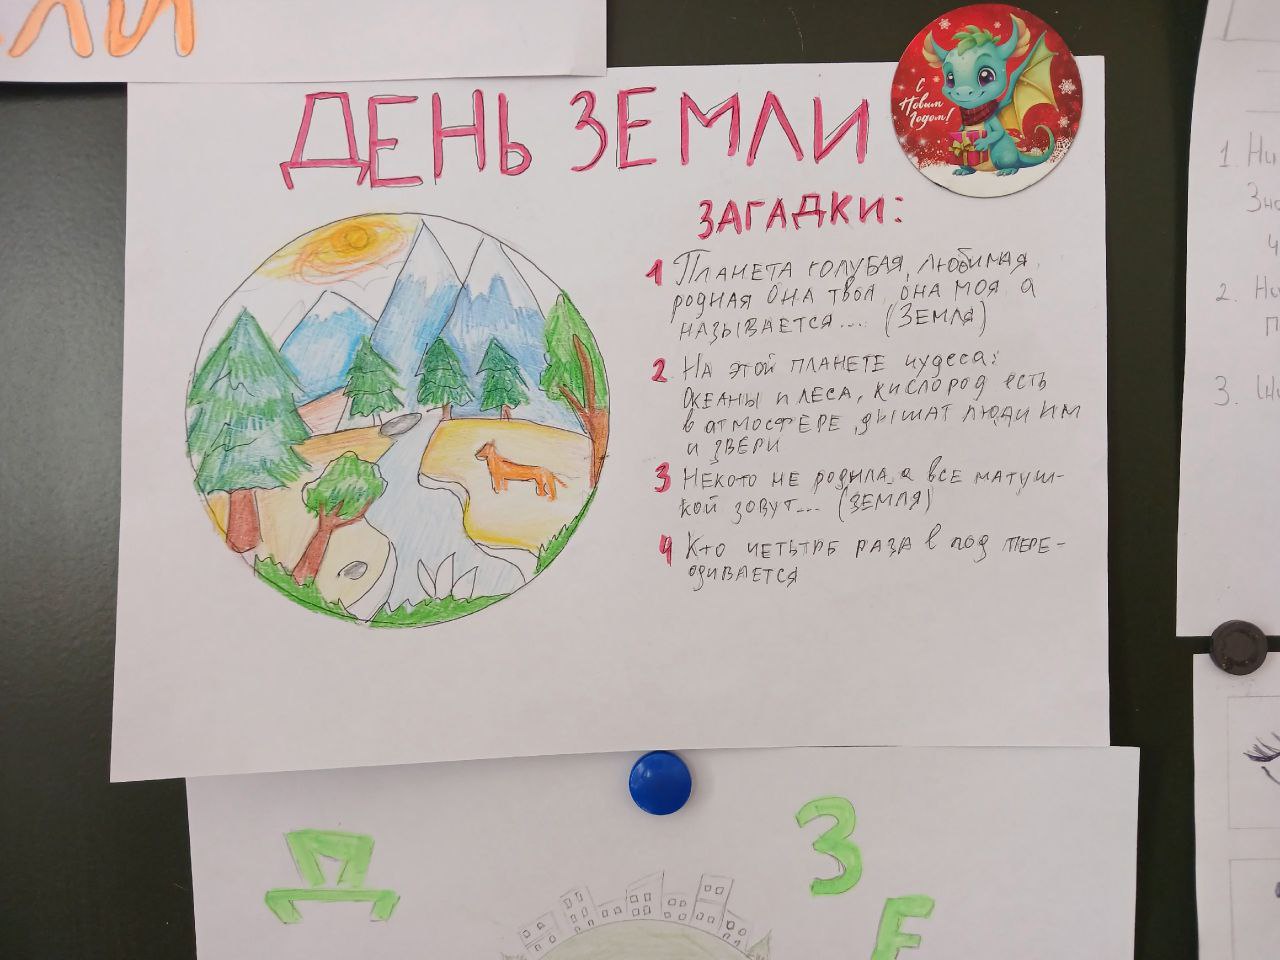 ЛИ
ДЕНЬ ЗЕМЛИ
С
Новым
Годом!
ЗАГАДКИ:
1 ПЛАНЕТА ГОЛУБАЯ, ЛЮБИМАЯ,
РОДНАЯ ОНА ТВОЯ, ОНА МОЯ, А
НАЗЫВАЕТСЯ... (ЗЕМЛЯ)
2 НА ЭТОЙ ПЛАНЕТЕ ЧУДЕСА:
ОКЕАНЫ И ЛЕСА, КИСЛОРОД ЕСТЬ
В АТМОСФЕРЕ, ДЫШАТ ЛЮДИ ИМ
И ЗВЕРИ
3 НЕКОГО НЕ РОДИЛА, А ВСЕ МАТУШ-
КОЙ ЗОВУТ... (ЗЕМЛЯ)
4 КТО ЧЕТЫРЕ РАЗА В ГОД ПЕРЕ-
ОДИВАЕТСЯ
1.
2.
3.
Д
З
Е